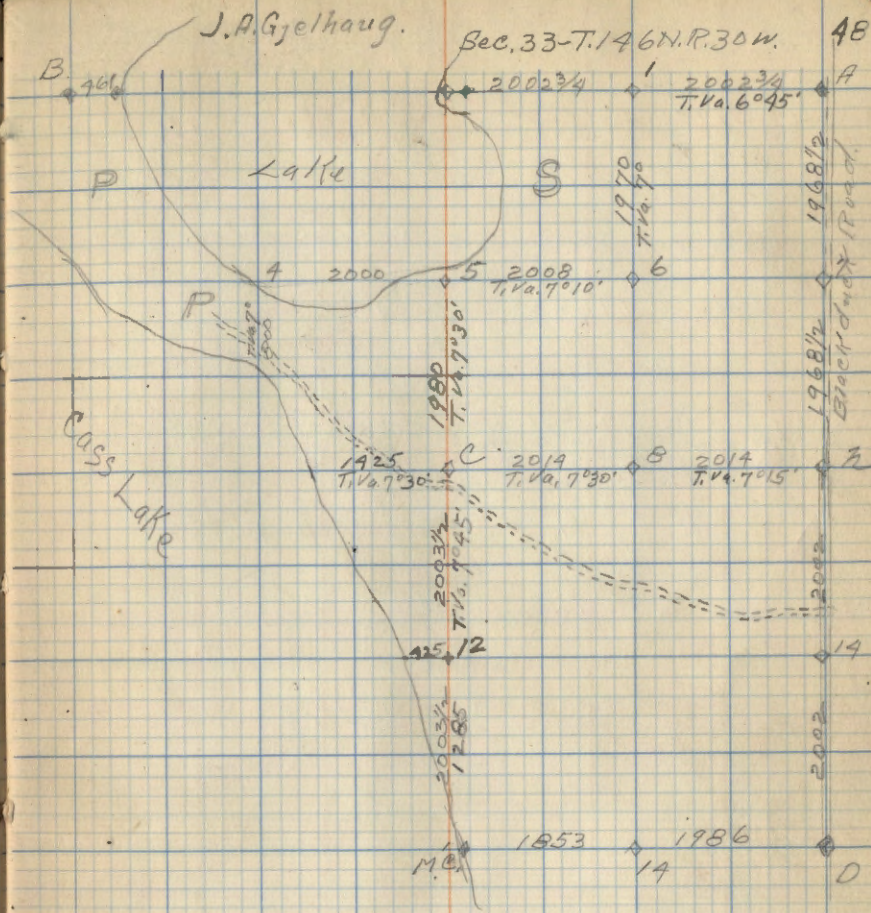 J.A.Gjelhaug.
Sec.33-T.146N.R.30W.
48
B
461
2002 3/4
1
2002 3/4
T.Va.6°45'
A
P
Lake
S
1970
T.Va.7°
1968 1/2
Blackduck Road.
4
2000
5
2008
T.Va.7°10'
6
P
T.Va.7°
1980
T.Va.7°30'
1968 1/2
Cass Lake
1425
T.Va.7°30'
C
2014
T.Va.7°30'
8
2014
T.Va.7°15'
2003 1/2
T.Va.7°45'
2002
425
12
14
2003 1/2
1285
2002
M.C.
1853
14
1986
D